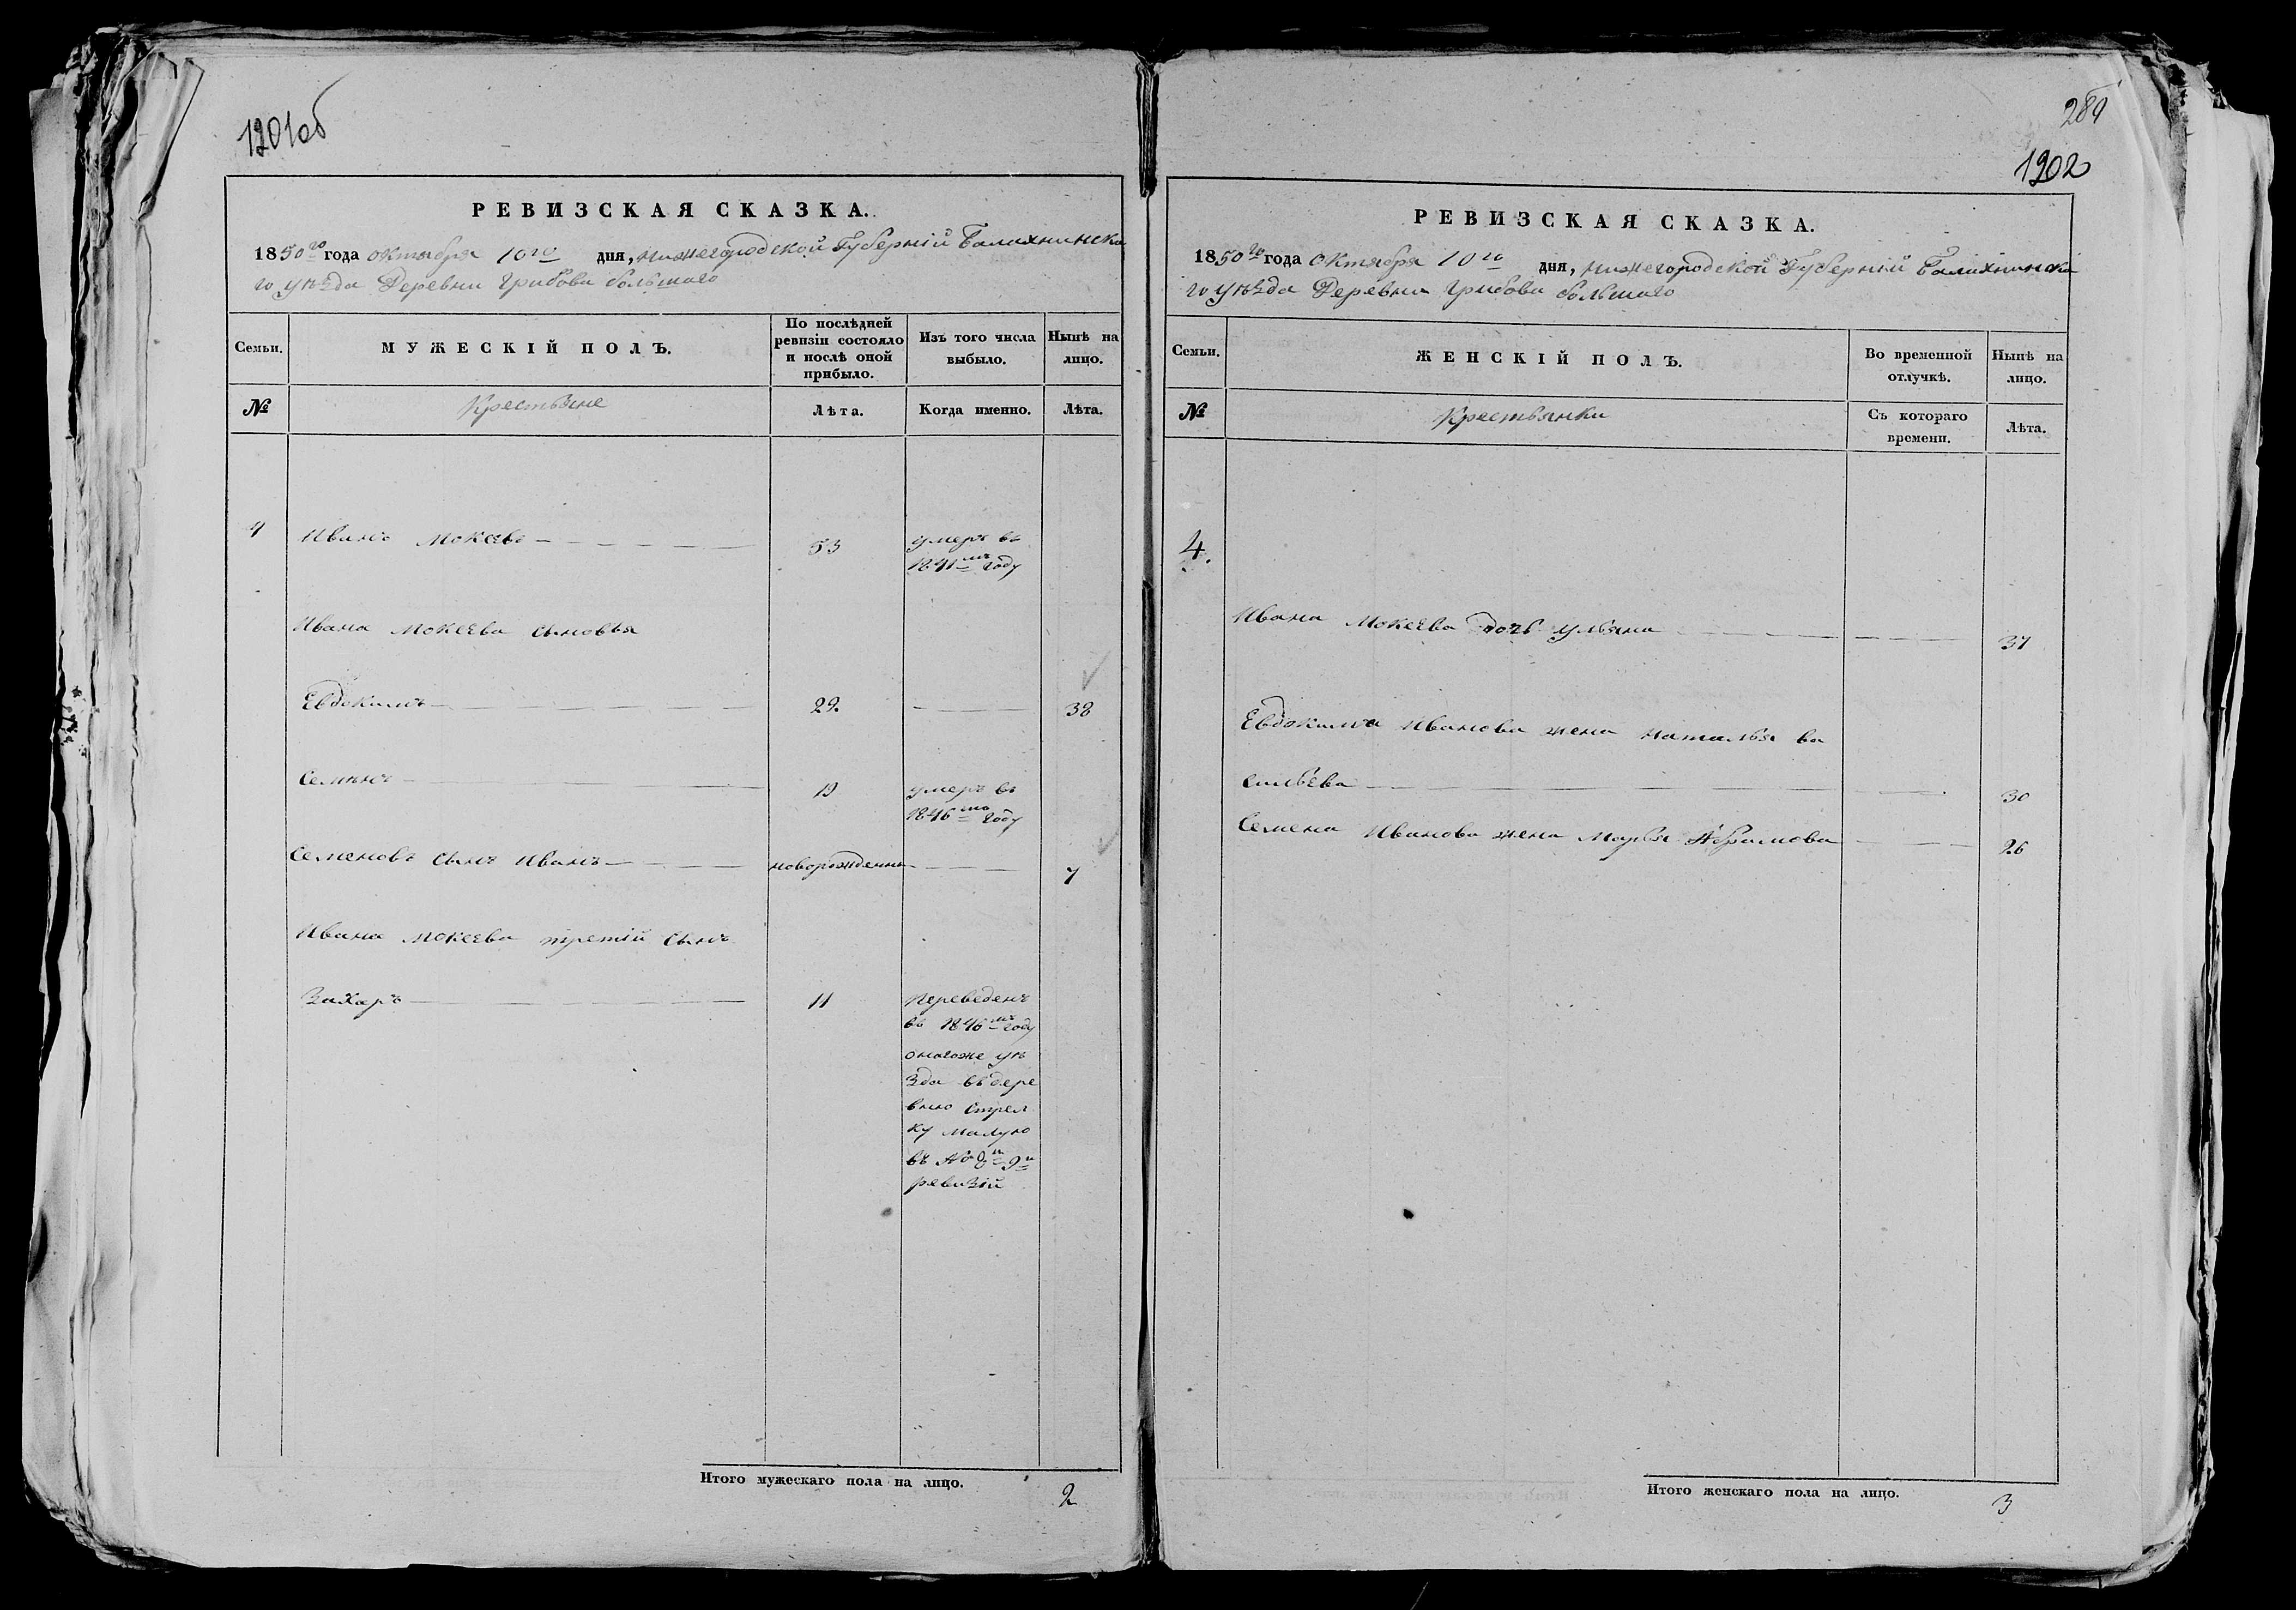 1201об
РЕВИЗСКАЯ СКАЗКА.
1850го года октября 10го дня, нижегородской Губерніи Балахнинска
го уѣзда Деревни Грибова большаго
Семьи.
МУЖЕСКІЙ ПОЛЪ.
По послѣдней ревизіи состояло и послѣ оной прибыло.
Изъ того числа выбыло.
Нынѣ на лицо.
№
Крестьяне
Лѣта.
Когда именно.
Лѣта.
4
Иванъ Мокѣевъ 53 умеръ въ
1841мъ году
Ивана Мокеева сыновья
Евдокимъ 29. 38
Семенъ 19 умеръ въ
1846мъ году
Семеновъ сынъ Иванъ новорожденны 7
Ивана Мокеева третій сынъ
Захаръ 11 Переведенъ
въ 1846мъ году
онагоже уѣ
зда въ дере
вню Стрел
ку малую
въ № 8й 9й
ревизіи
Итого мужескаго пола на лицо. 2
289
1902
РЕВИЗСКАЯ СКАЗКА.
1850го года Октября 10го дня, нижегородской Губерніи Балахнинска
го уѣзда Деревни Грибова большаго
Семьи.
ЖЕНСКІЙ ПОЛЪ.
Во временной отлучкѣ.
Нынѣ на лицо.
№
Крестьянки
Съ котораго времени.
Лѣта.
4.
Ивана Мокеева дочь ульяна 37
Евдокима Иванова жена наталья ва
сильева 30
Семена Иванова жена Марья Абрамова 26
Итого женскаго пола на лицо. 3